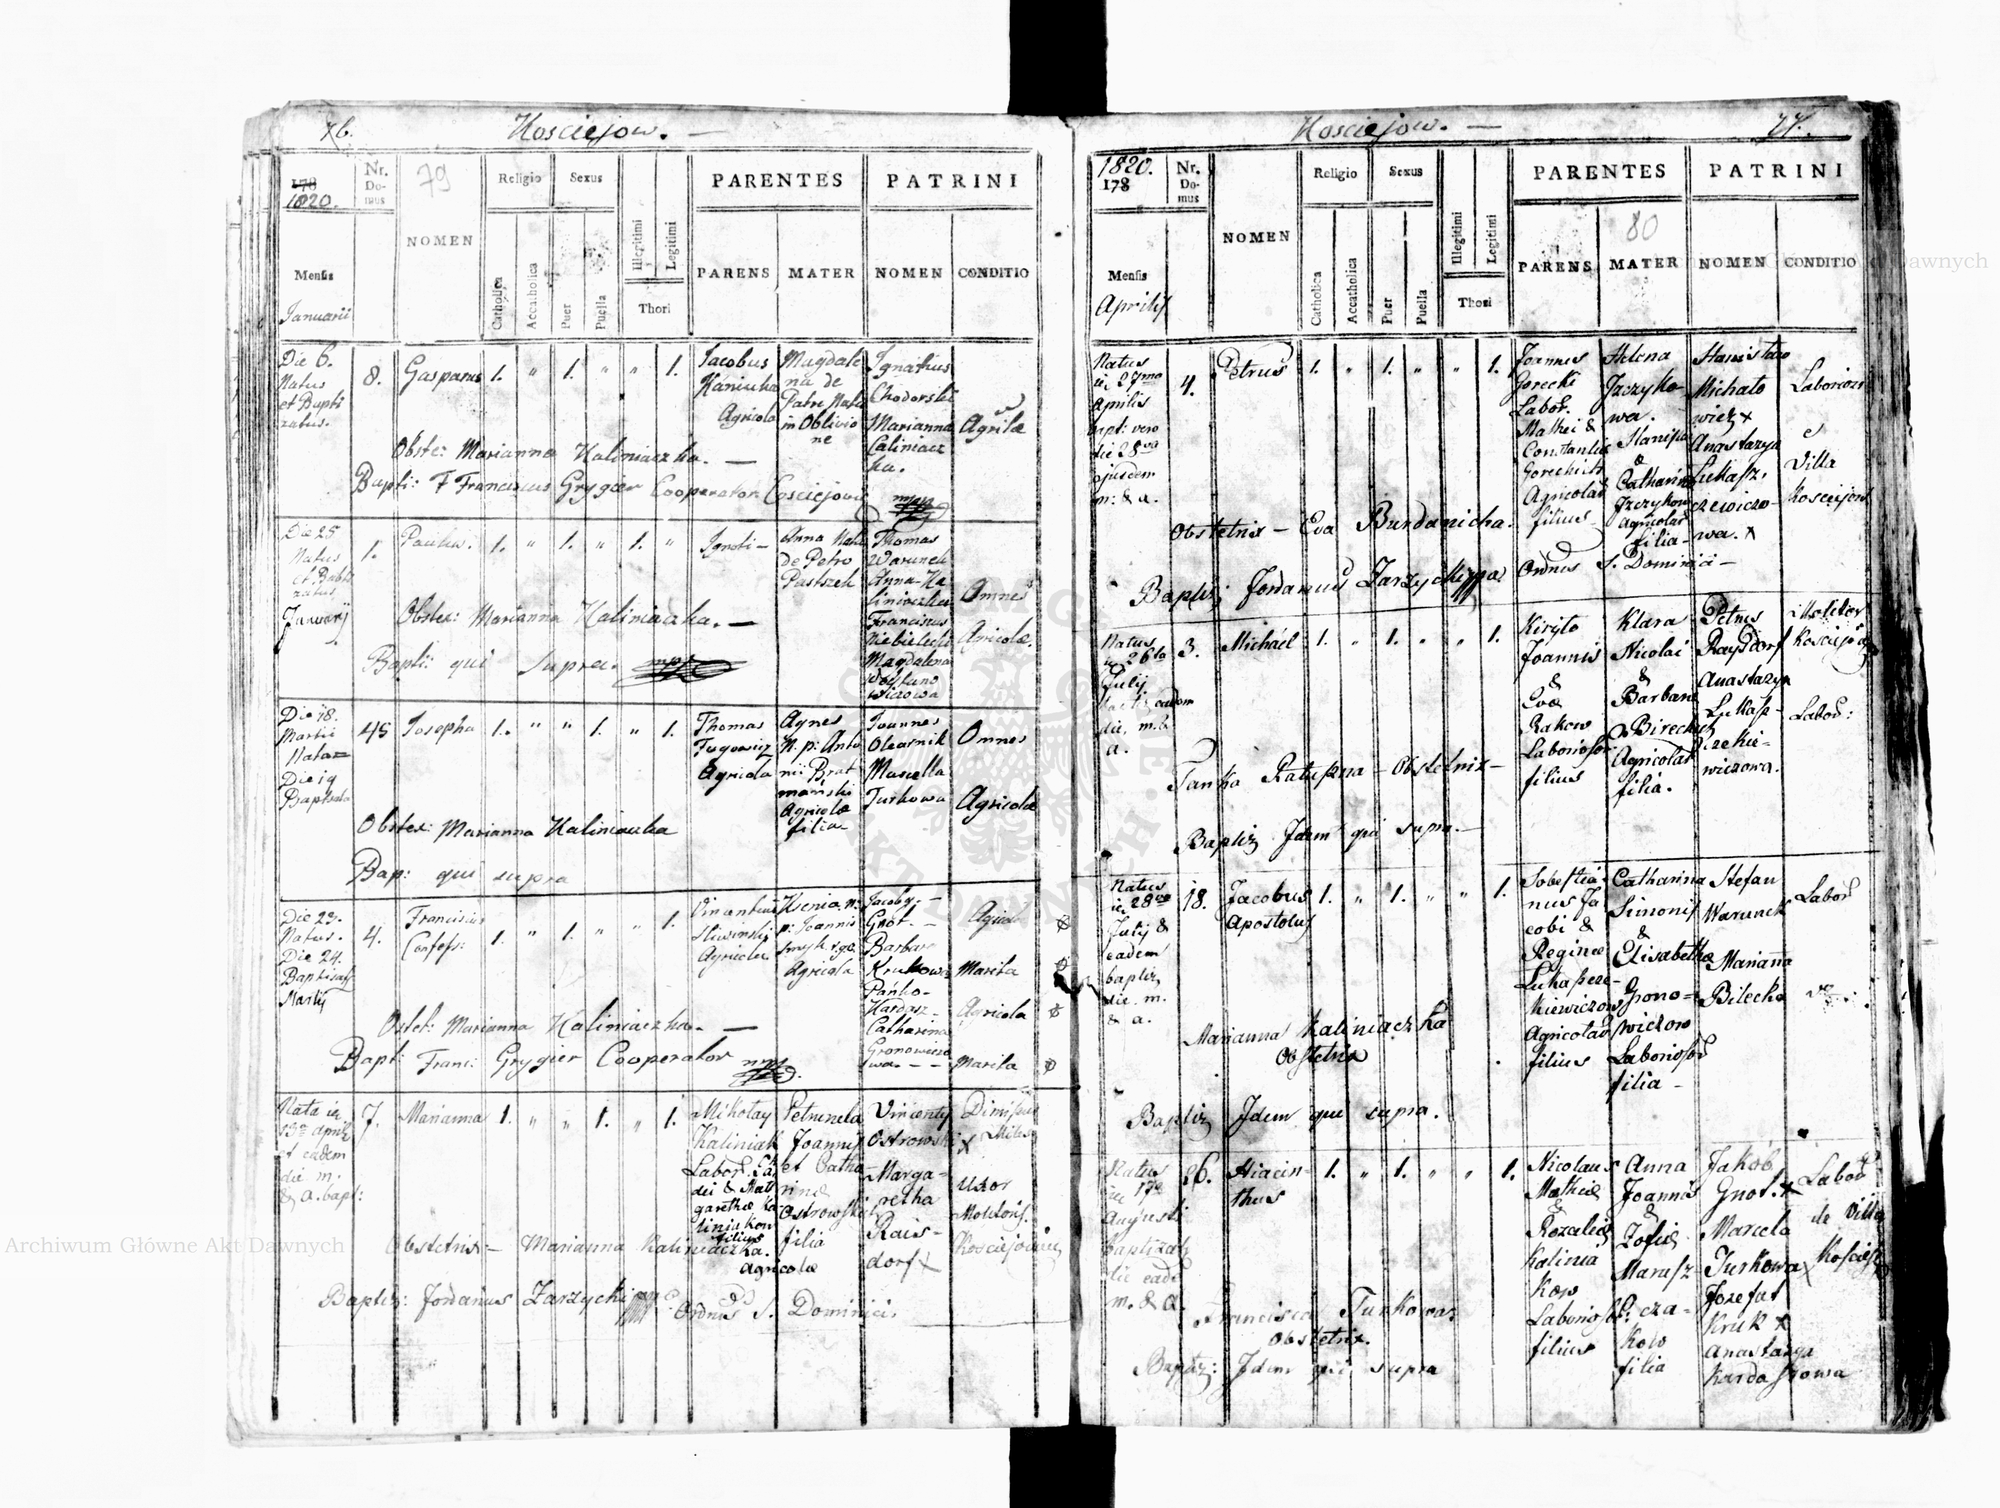 76.
Kosciejow. —
178
1820.
Nr.
Do-
mus
79
NOMEN
Religio
Sexus
Catholica
Accatholica
Puer
Puella
Illegitimi
Legitimi
Thori
PARENTES
PATRINI
PARENS
MATER
NOMEN
CONDITIO
Mensis
Januarii
Die 6.
Natus
et Bapti
zatus.
8.
Gasparus
1.
"
1.
"
"
1.
Jacobus
Kaniuka
Agricola
Magdale
na de
Patre Nata
in Oblivio
ne
Ignatius
Chodorski
Marianna
Caliniacz
ka.
Agricolæ
Obste: Marianna Kaliniaczka. —
Bapti: F Franciscus Grygier Cooperator Cosciejovi
mpp
Die 25.
Natus
et Babti
zatus
Januarij
1.
Paulus.
1.
"
1.
"
1.
"
Ignoti —
Anna Nata
de Petro
Pastszek
Thomas
Warunek
Anna Ka
liniaczka
Franciscus
Niebielecki
Magdalena
Woytuno
wiczowa
Omnes
Agricolæ.
Obstet: Marianna Kaliniaczka. —
Bapti: qui supra. mpp
Die 18.
Martii
Nata
Die 19
Baptisata
45
Josepha
1.
"
"
1.
"
1.
Thomas
Agricola
Agnes
N. p: Anto
nii Brat
mański
Agricolæ
filia
Joannes
Olearnik
Marcella
Turkowa
Omnes
Agricolæ
Obstet: Marianna Kaliniaczka
Bap: qui supra
Die 23.
Natus.
Die 24.
Baptisatus
Martij
4.
Franciscus
Confess:
1.
"
1.
"
"
1.
Vincentius
Sliwinski
Agricola
Ksenia n:
p: Joannis
Smyk
Agricola
Jacoby. —
Gnot. —
Barbar
Krukowa
Pańko —
Kardasz —
Catharina
Gronowiczo
wa — —
Agricol
Marita
Agricola
Marita
Ostet: Marianna Kaliniaczka. —
Bapt: Franc: Grygier Cooperator mpp
Nata in
13ª April
et eadem
die m.
& a. bapt:
7.
Marianna
1.
"
"
1.
"
1.
Mikołay
Kaliniak
Labor.
dei & Mar
garethæ Ka
liniakow
filius
Agricolæ
Petrunela
Joannis
et Catha
rinæ
Ostrowski
filia
Vincenty
Ostrowski x
Marga-
retha
Rais-
dorf x
Dimissus
Miles
uxor
Molitoris.
Kosciejoviensis
Obstetrix — Marianna Kaliniaczka.
Baptiz: Jordanus Zarzycki Ordinis S. Dominici.
Kosciejow. —
77.
1820.
178
Nr.
Do-
mus
NOMEN
Religio
Sexus
Catholica
Accatholica
Puer
Puella
Illegitimi
Legitimi
Thori
PARENTES
PATRINI
80
PARENS
MATER
NOMEN
CONDITIO
Mensis
Aprilis
Natus
die 27ma
Aprilis
bapt: vero
die 28va
ejusdem
m: & a.
4.
Petrus
1.
"
1.
"
"
1.
Joannes
Gorecki
Labor.
Mathei &
Constantiæ
Goreckich
Agricolar
filius
Helena
Jzczyko-
wa.
Stanislai
&
Catharinæ
Jzczykow
Agricolar
filia —
Stanislaw
Michało
wicz x
Anastazya
Lukasz,
czewiczo-
wa. x
Laboriosi
e
Villa
Kosciejow
Obstetrix — Eva Burdanicha.
Baptiz Jordanus Zarzycki Ordinis S. Dominici —
Natus
die 26ta
Julij
bapti: eadem
die, m. &
a.
3.
Michael
1.
"
1.
"
"
1.
Kiryło
Joannis
&
Evæ
Rakow
Laboriosor
filius
Klara
Nicolai
&
Barbaræ
Bireckich
Agricolar
filia.
Petrus
Raysdorf
Anastazya
Lukasz-
czekie-
wiczowa.
Molitor
Kosciejov
Labor:
Tanka Ratuszna — Obstetrix —
Baptiz Idem qui supra. —
Natus
die 28va
Julij &
eadem
baptiz
die. m.
& a.
18.
Jacobus
Apostolus
1.
"
1.
"
"
1.
Sobestia-
nus Ja
cobi &
Reginæ
Lukaszeze-
kiewiczow
Agricolar
filius
Catharina
Simonis
&
Elisabethæ
Grono=
wiczow
Laboriosor
filia —
Stefan
Warunek
Marianna
Bilecka
Labor
Marianna Kaliniaczka
Obstetrix
Baptiz Idem qui supra.
Natus
die 17a
Augusti
baptizatus
die eadem
m. & a.
26.
Hiacin-
thus
1.
"
1.
"
"
1.
Nicolaus
Mathiæ
&
Rozaliæ
Kalinia
kow
Laboriosor:
filius
Anna
Joannis
&
Zofiæ
Marasz-
cza-
kow
filia
Jakob
Gnot. x
Marcela
Turkowa x
Jozefat
Kruk x
Anastazya
Kardaszowa
Labor
de Villa
Kosciejov
Francisca Turkowa
Obstetrix.
Baptiz: Idem qui supra
Archiwum Główne Akt Dawnych